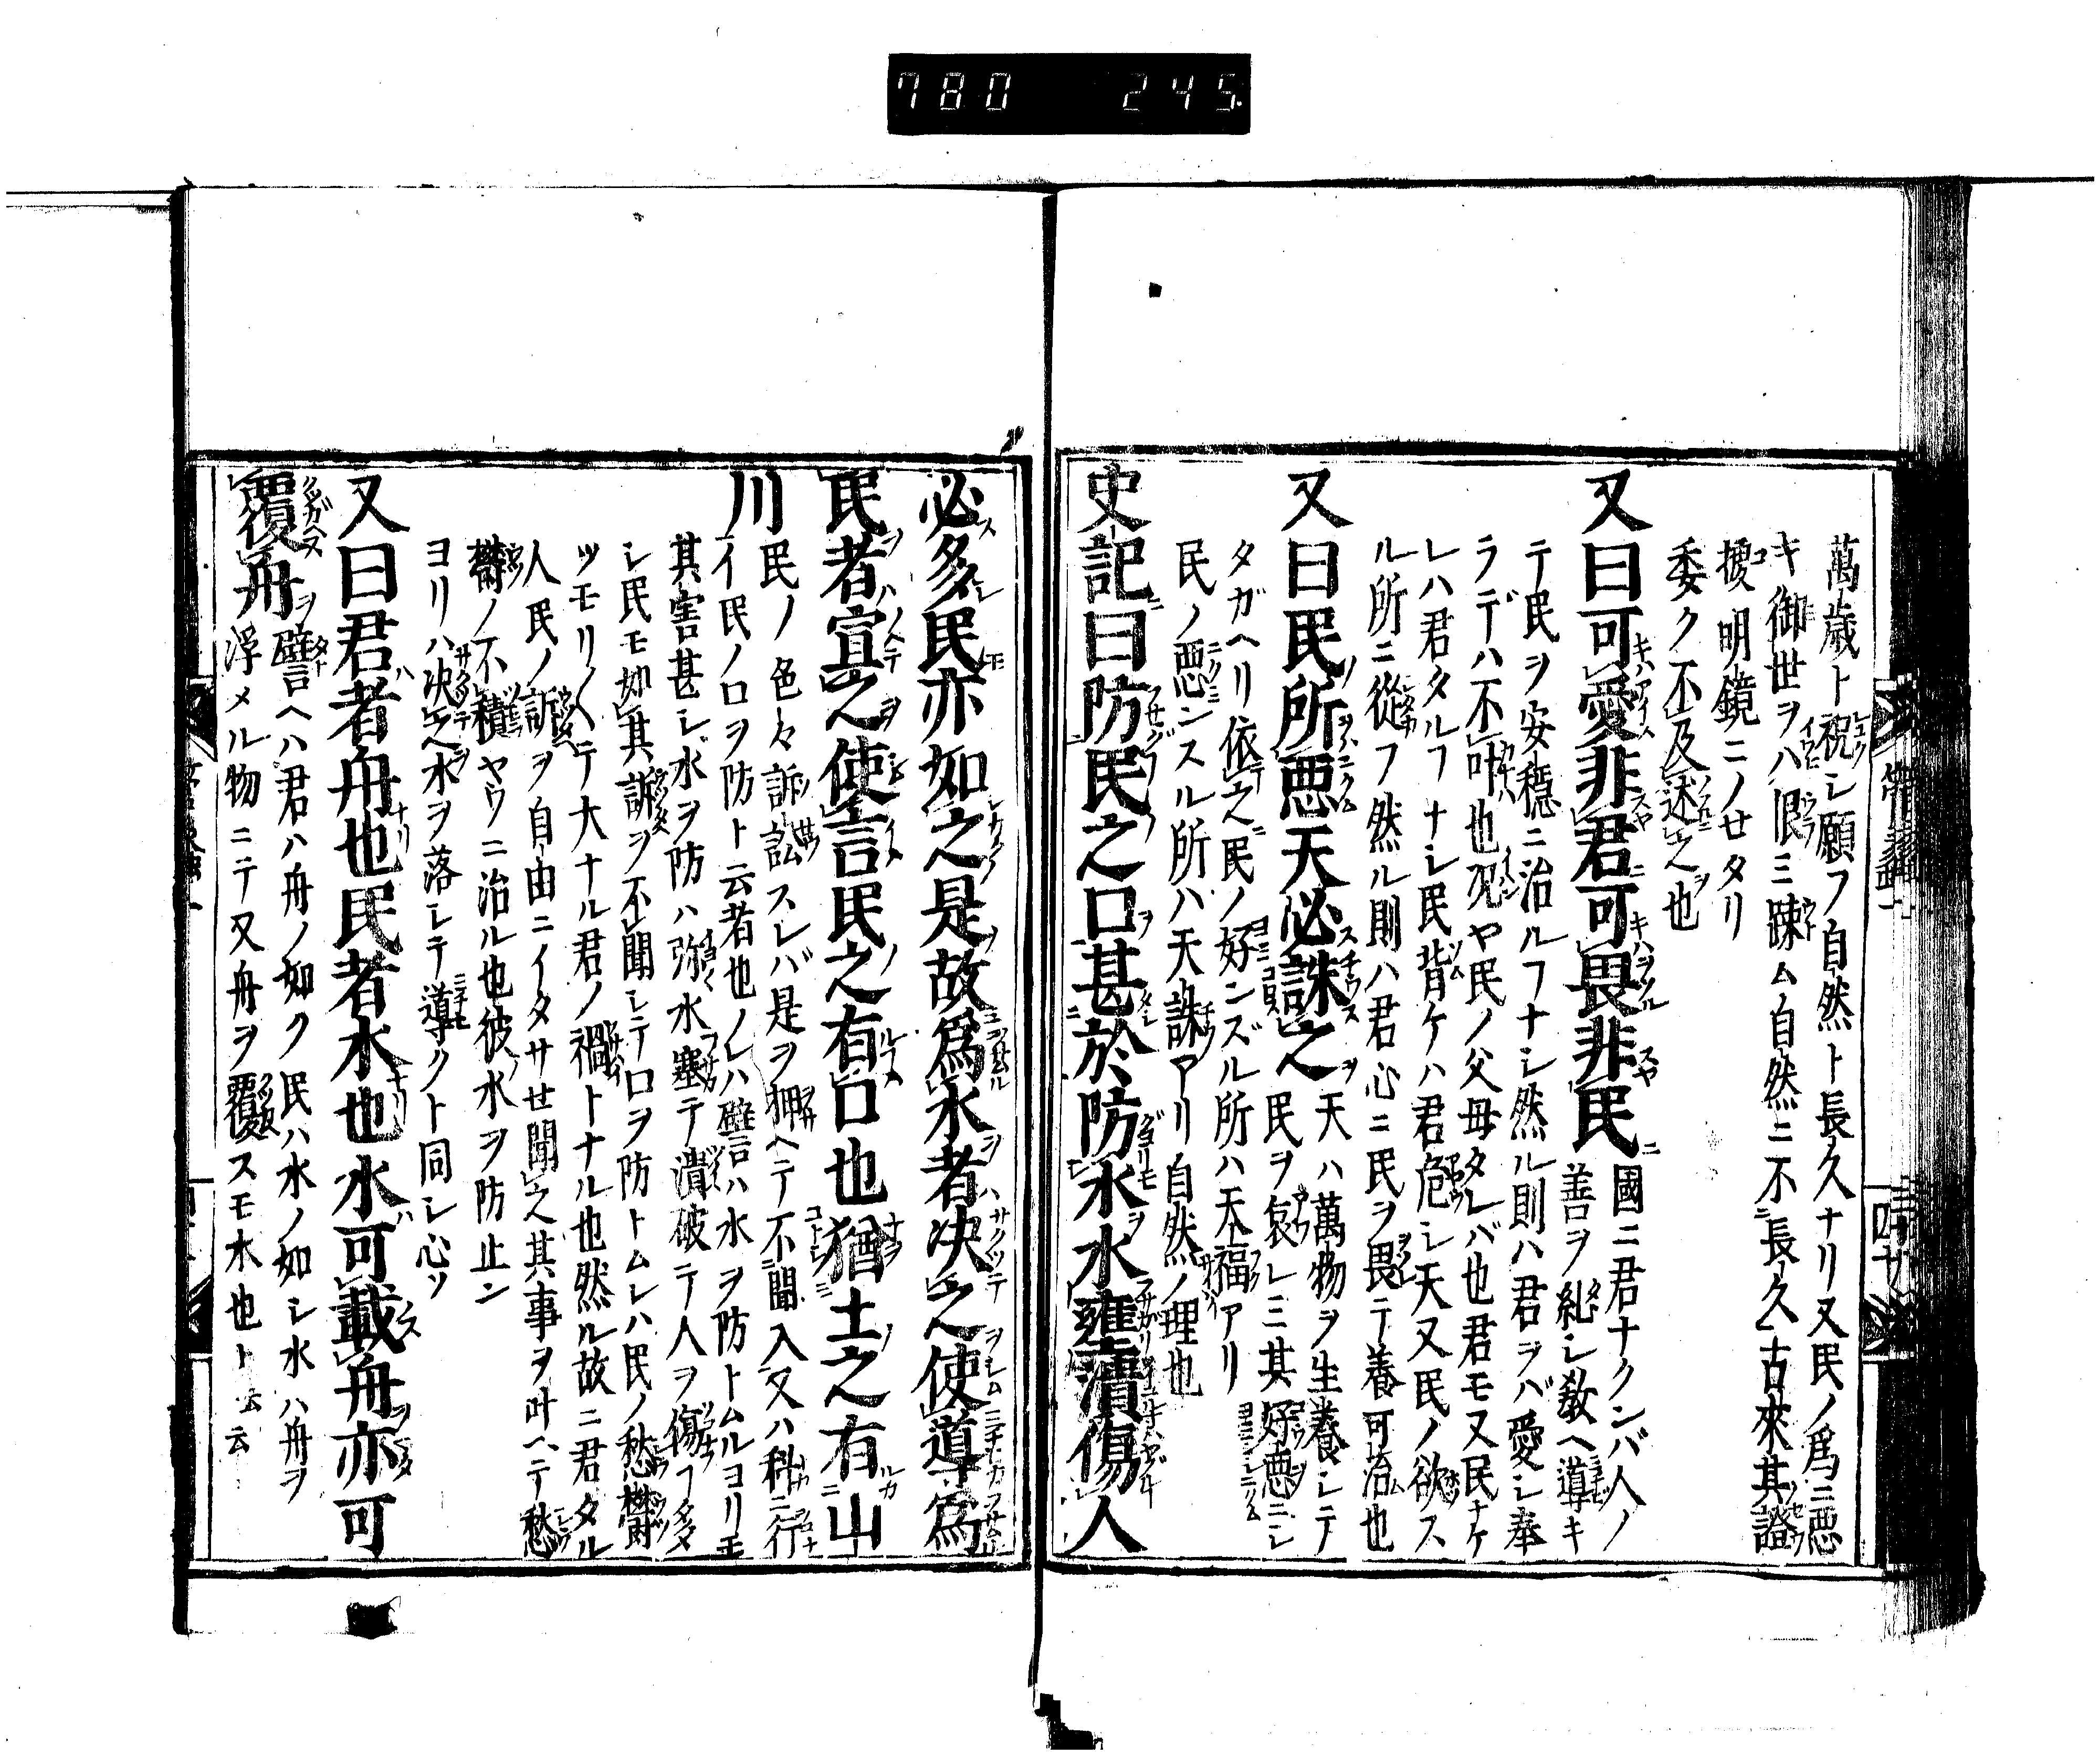 780 245
萬歳ト祝シ願フ自然ト長久ナリ又民ノ爲ニ悪
キ御世ヲハ恨ミ踈ム自然ニ不長久古來其證
擾明鏡ニノセタリ
委ク不及述之也
又曰可愛非君可畏非民國ニ君ナクンバ人ノ
善ヲ糺シ敎ヘ導キ
テ民ヲ安穏ニ治ルフナシ然ル則ハ君ヲバ愛シ奉
ラデハ不叶也况ヤ民ノ父母タレバ也君モ又民ナケ
レハ君タルフナシ民背ケハ君危シ天又民ノ欲ス
ル所ニ從フ然ル則ハ君心ニ民ヲ畏テ養可治也
又曰民所悪天必誅之天ハ萬物ヲ生養シテ
民ヲ哀レミ其好悪ニシ
タガヘリ依之民ノ好ンズル所ハ天福アリ
民ノ悪ンスル所ハ天誅アリ自然ノ理也
史記曰防民之口甚於防水水壅潰傷人
必多民亦如之是故爲水者决之使導爲
民者宣之使言民之有口也猶土之有山
川民ノ色々訴訟スレバ是ヲ拥ヘテ不聞入又ハ科ニ行
イ民ノ口ヲ防ト云者也ノレハ譬ハ水ヲ防トムルヨリモ
其害甚シ水ヲ防ハ弥水塞テ潰破テ人ヲ傷フ多
シ民モ如其訴ヲ不聞シテ口ヲ防トムレハ民ノ愁欝
ツモリ〱テ大ナル君ノ禍トナル也然ル故ニ君タル
人民ノ訴ヲ自由ニイタサセ聞之其事ヲ叶ヘテ愁
欝ノ不積ヤウニ治ル也彼水ヲ防止ン
ヨリハ决之水ヲ落シテ導クト同シ心ソ
又曰君者舟也民者水也水可載舟亦可
覆舟譬ヘハ君ハ舟ノ如ク民ハ水ノ如シ水ハ舟ヲ
浮メル物ニテ又舟ヲ覆スモ水也ト云云